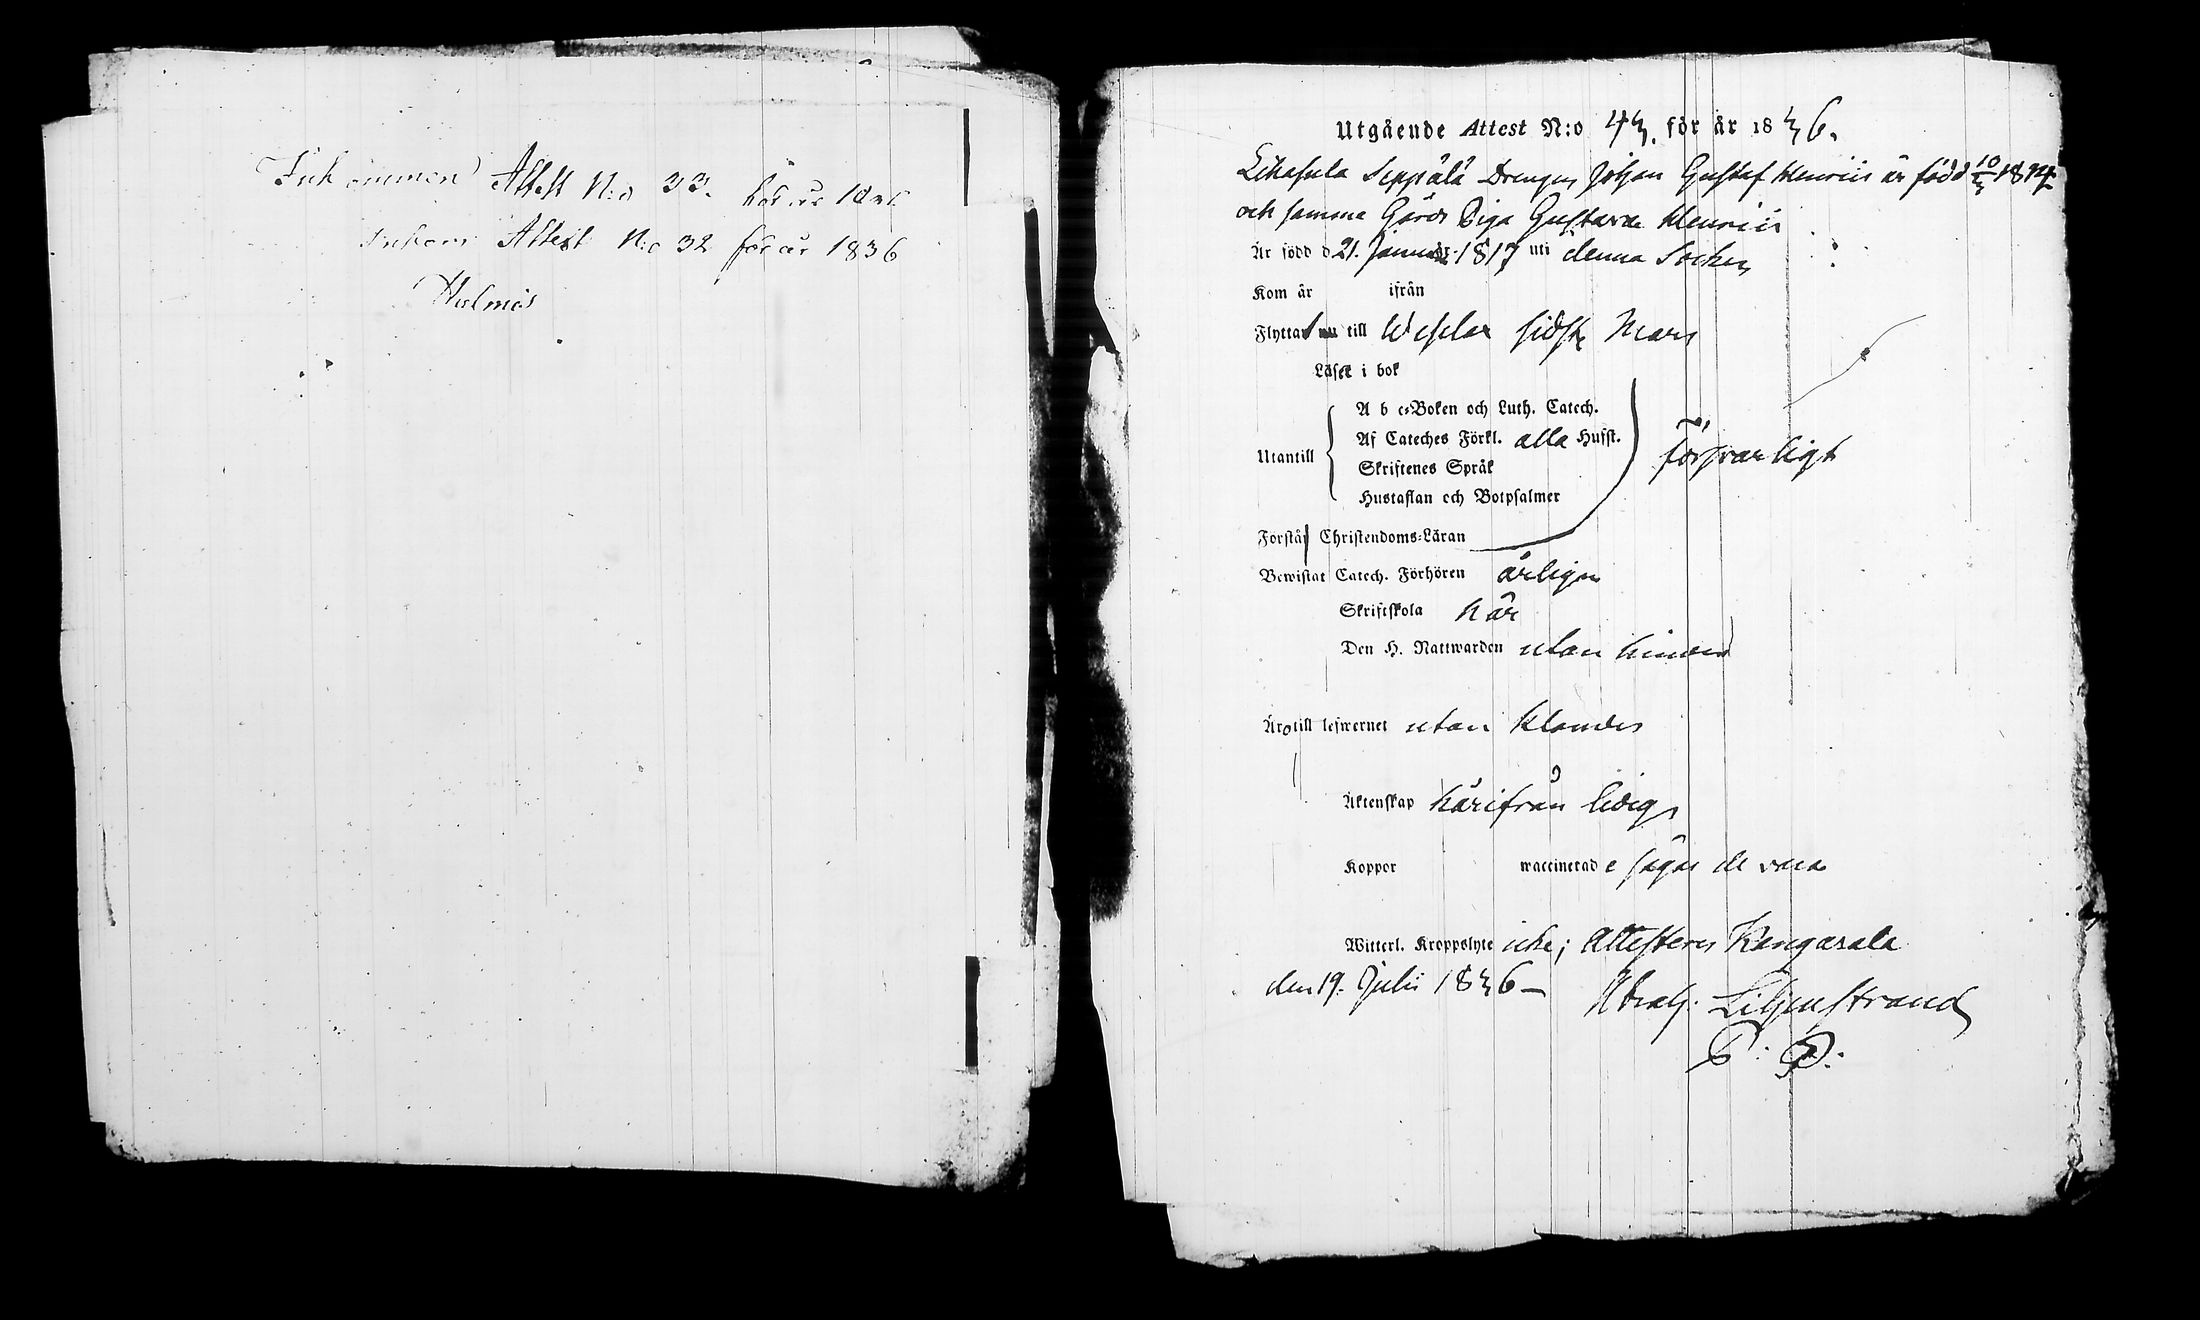 Inkommen Attest N:o 33. för år 1836
Inkom Attest N:o 32 för år 1836
Holmós
Utgående Attest N:o 43. för år 1836.
Lihasula Seppälä Drengen Johan Gustaf Henriss är född 10/3 1814
och samma Gårds Piga Gustava Henriss
Är född d 21. Januar 1817 uti denna Socken
Kom år ifrån
Flyttar nu till Wesilax sidstl. Mars
Läser i bok
A b c-Boken och Luth. Catech.
Af Cateches Förkl. alla Hufst.
Utantill försvarligt
Skriftenes Språk
Hustaflan och Botpsalmer
Förstår Christendoms-Läran
Bewistat Catech. Förhören årligen
Skriftskola här
Den H. Nattwarden utan hinder
Äro till lefwernet utan klander
Äktenskap härifrån lediga
Koppor waccinerade sägas de vara
Witterl. Kroppslyte icke; Attesteras Kangasala
den 19. Julii 1836 –
Abrah: Liljenstrand
P: P: